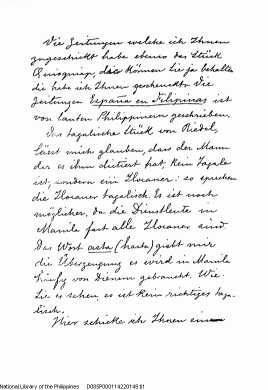 Die Zeitungen welche ich Ihnen
zugeschickt habe ebenso das Stück
Quioquiap, das können Sie ja behalten
die habe ich Ihnen geschenkt. Die
Zeitungen España en Filipinas ist
von lauten Philippinern geschrieben.
Das tagalische Stück von Riedel,
lässt mich glauben, dass der Mann
der es ihm dictiert hat, kein Tagale
ist, sondern ein Ilocaner: so sprechen
die Ilocaner tagalisch. Es ist noch
möglicher, da die Dienstleute in
Manila fast alle Ilocaner sind
Das Wort asta (hasta) giebt mir
die Überzeugung es wird in Manila
häufig von Dienern gebraucht. Wie
Sie es sehen, es ist kein richtiges taga-
lisch.
Hier schicke ich Ihnen
National Library of the Philippines D00SP000114220149 81